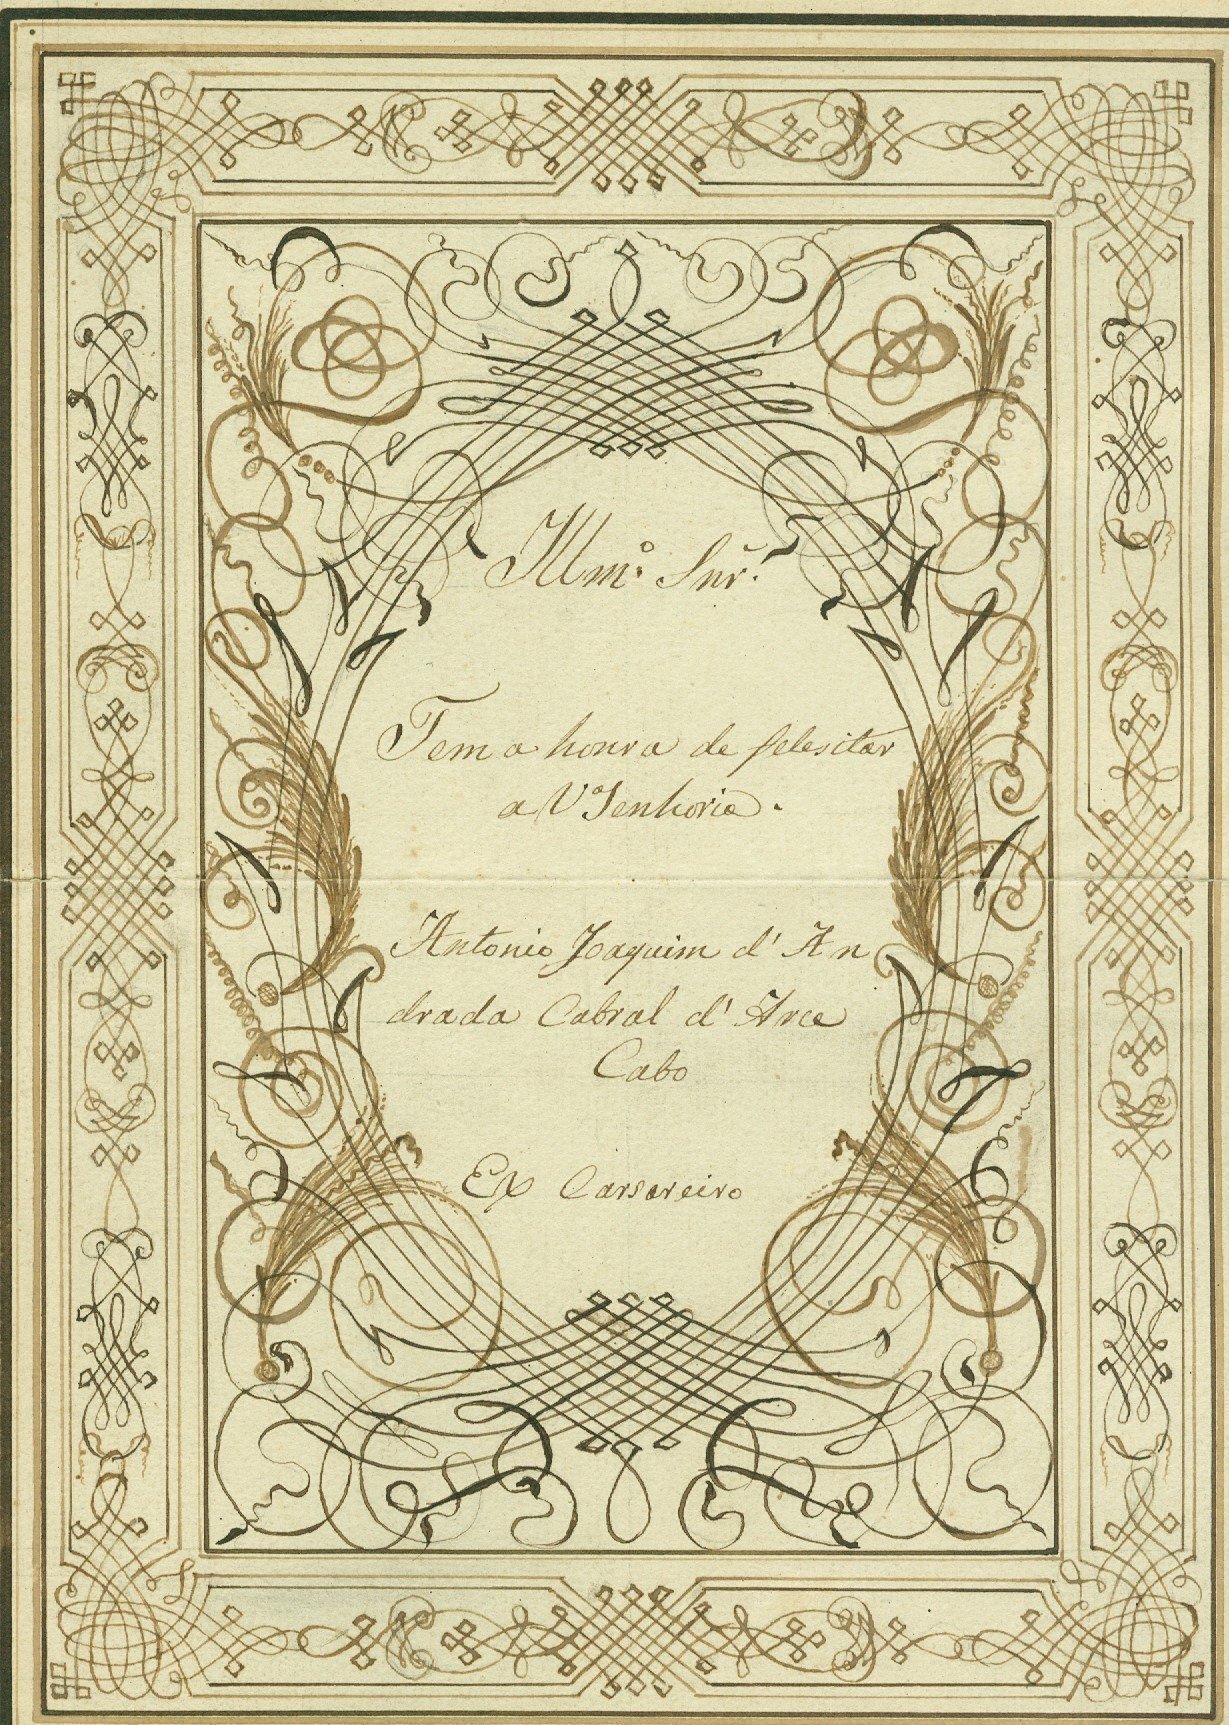 Illm.º Snr.
Tem a honra de felesitar
a Vª Senhoria.
Antonio Joaquim d' An
drada Cabral d' Arce
Cabo
Ex Carsereiro